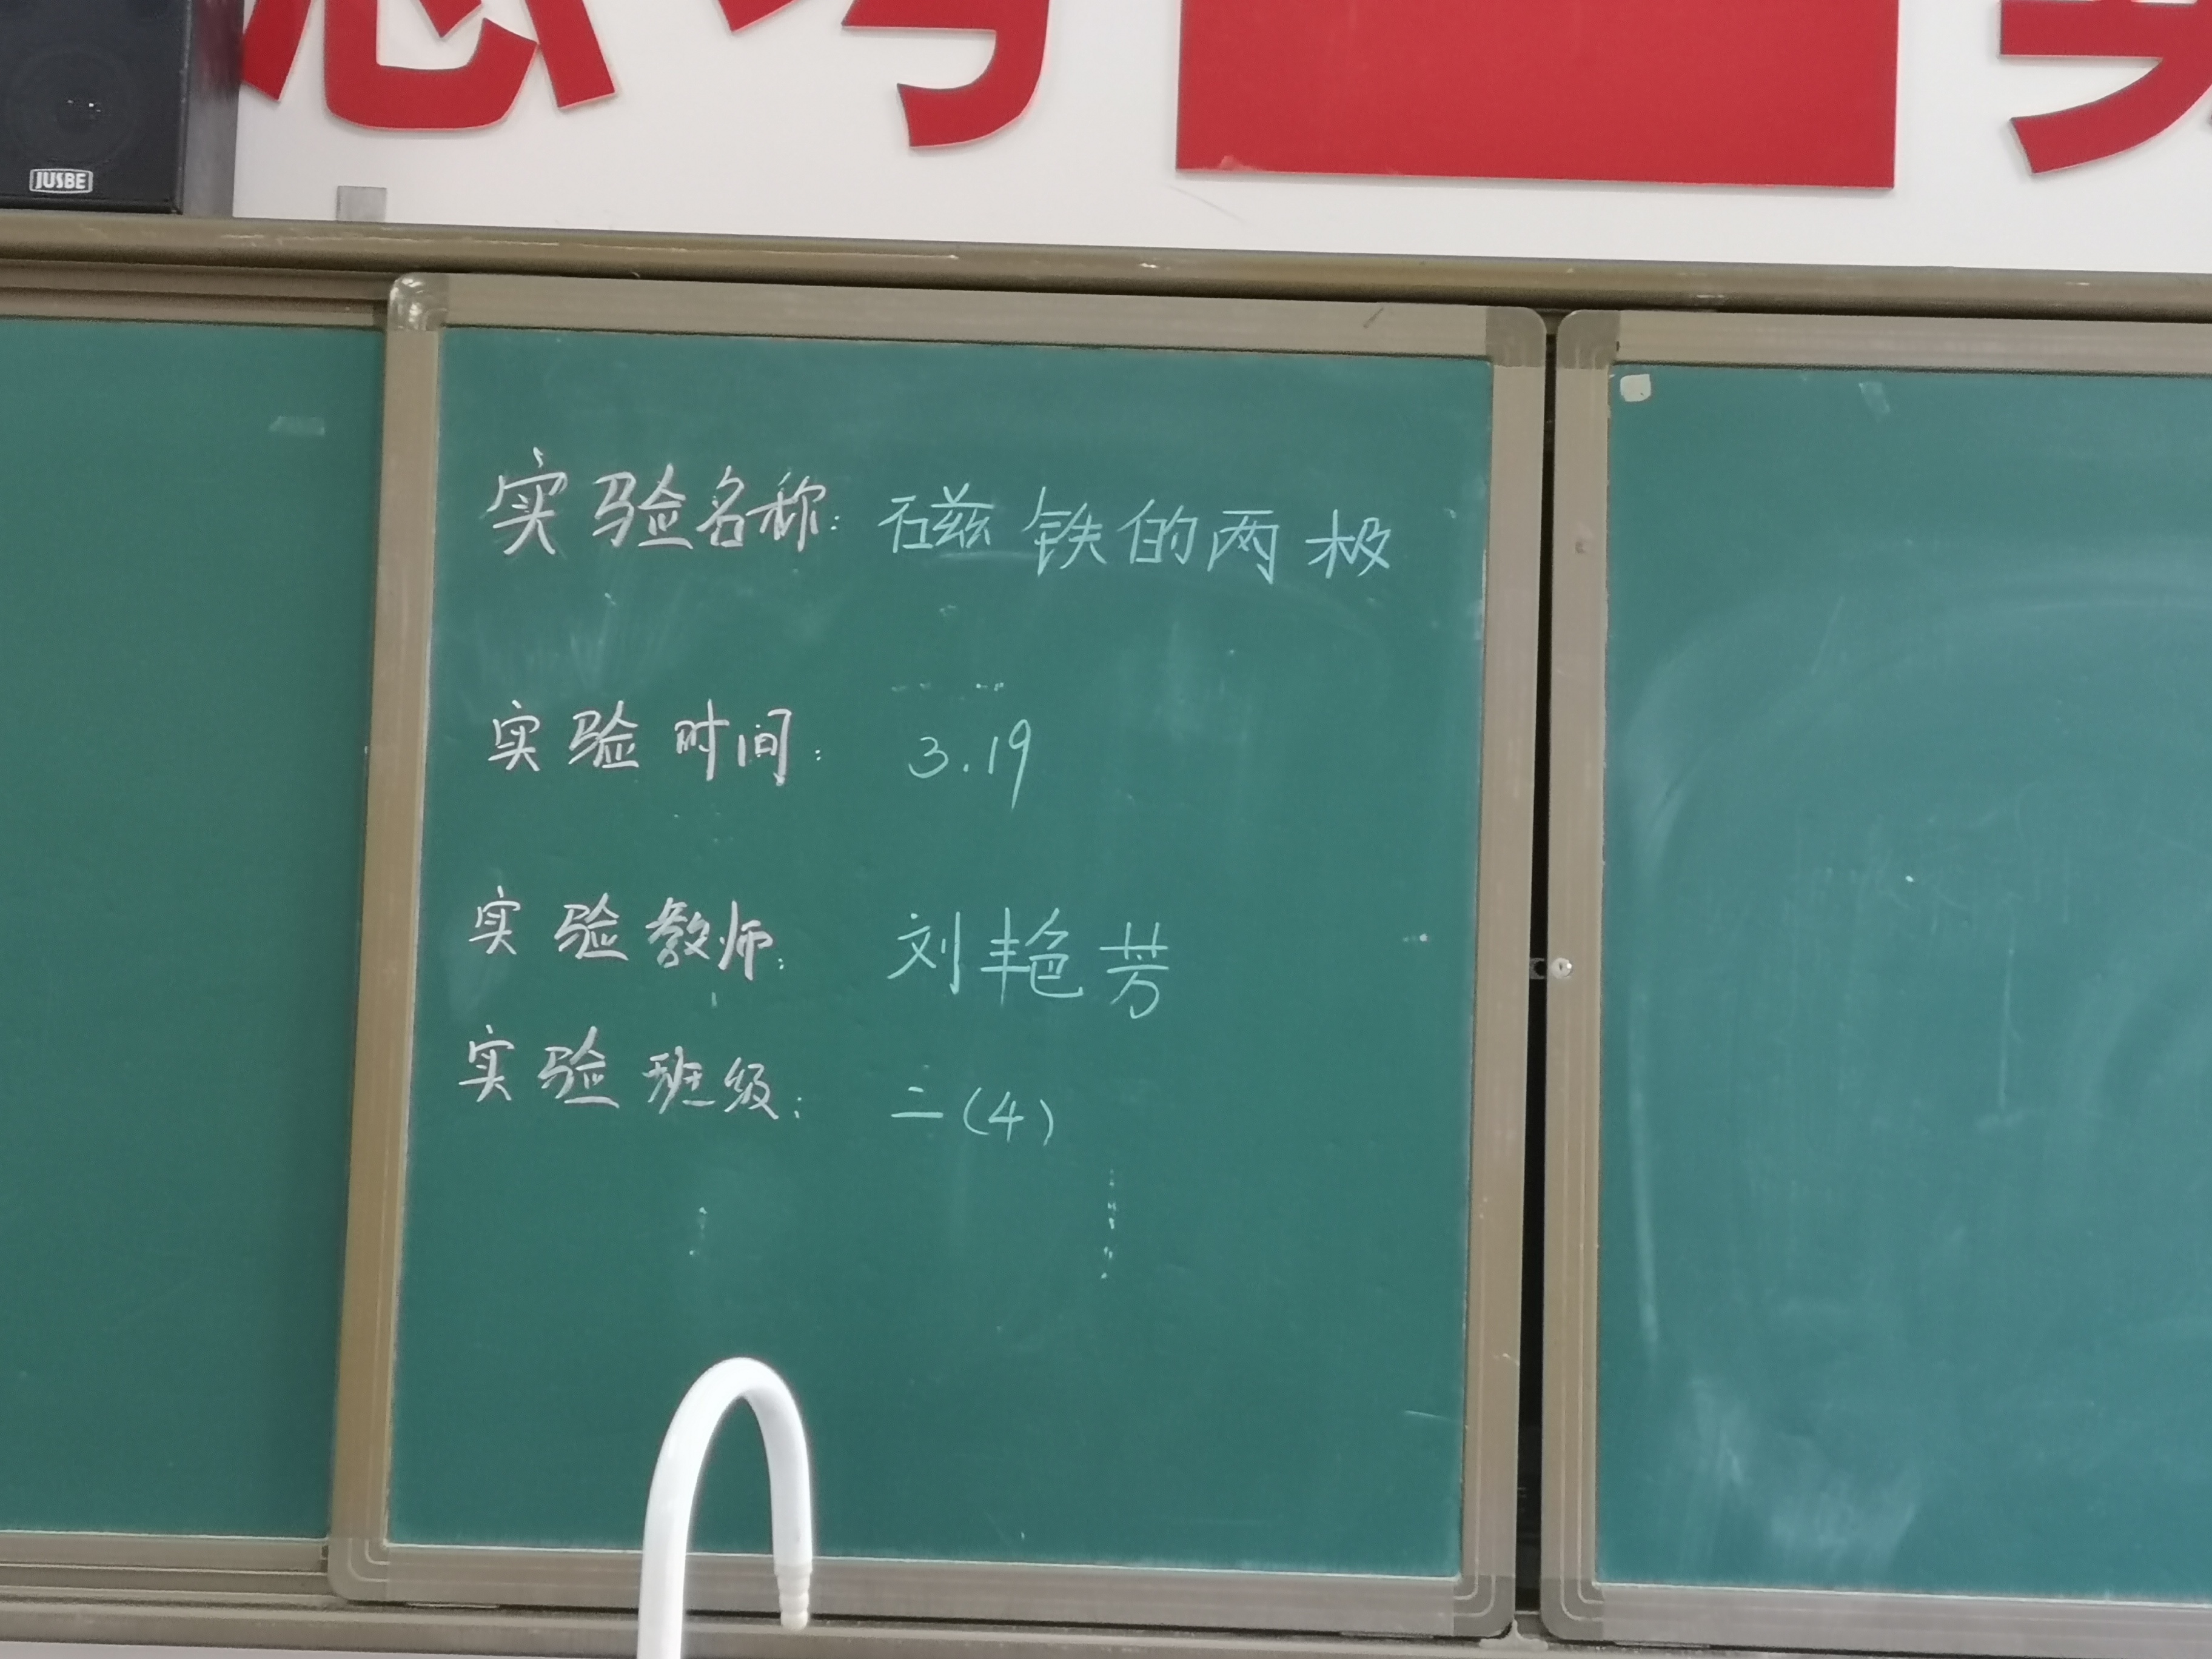 思考
JUSBE
实验名称：磁铁的两极
实验时间：3.19
实验教师：刘艳芳
实验班级：二(4)